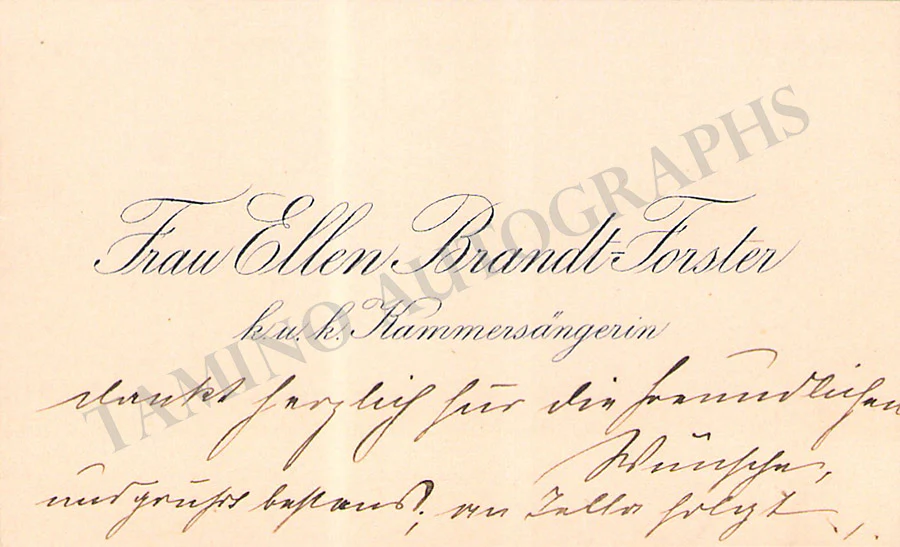 Frau Ellen Brandt=Forster
k. u. k. Kammersängerin
TAMINO AUTOGRAPHS
dankt herzlich für die freundlichen
Wünsche,
und grüßt bestens, an folgt